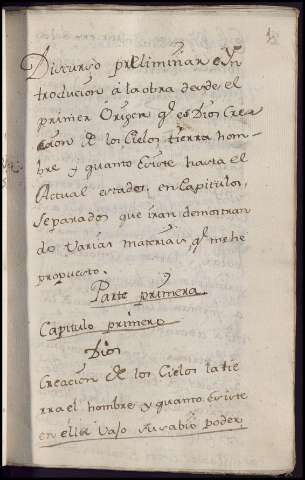 Discurso preliminar e Yn
troducion á la obra desde el
primer Origen q.e es Dios Crea
cion de los Cielos tierra hom-
bre y quanto Existe hasta el
Actual estado, en Capitulos,
Separados que iran demostran
do varias materias q.e me he
propuesto.
Parte primera
Capitulo primero
Dios
Creacion de los Cielos la tie
rra el hombre y quanto Existe
en ella vajo su sabio poder